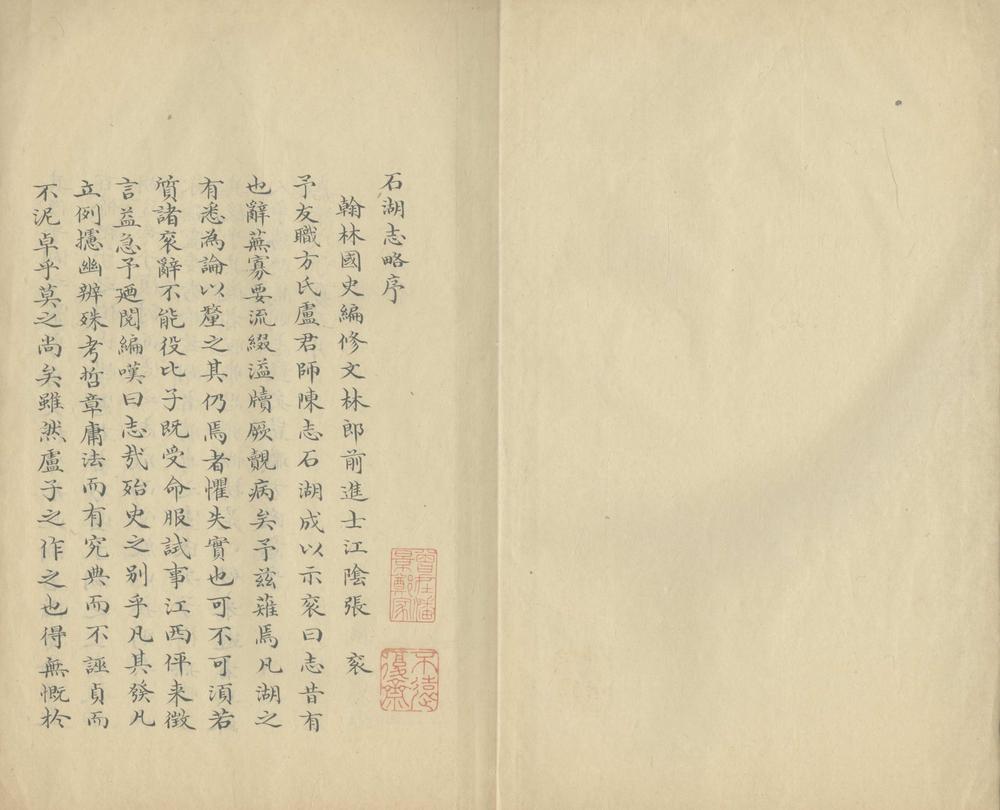 石湖志略序
翰林國史編修文林郎前進士江陰張 袞
予友職方氏盧君師陳志石湖成以示袞曰志昔有
也辭蕪寡要流綴溢牘厥覩病矣予茲薙焉凡湖之
有悉為論以釐之其仍焉者懼失實也可不可須若
質諸袞辭不能役比子既受命服試事江西伻来徵
言益急予廼閱編嘆曰志㢤殆史之别乎凡其發凡
立例攄幽辨殊考哲章庸法而有究典而不誣貞而
不泥卓乎莫之尚矣雖然盧子之作之也得無慨於
曾在潘
景鄭家
不遠
復齋